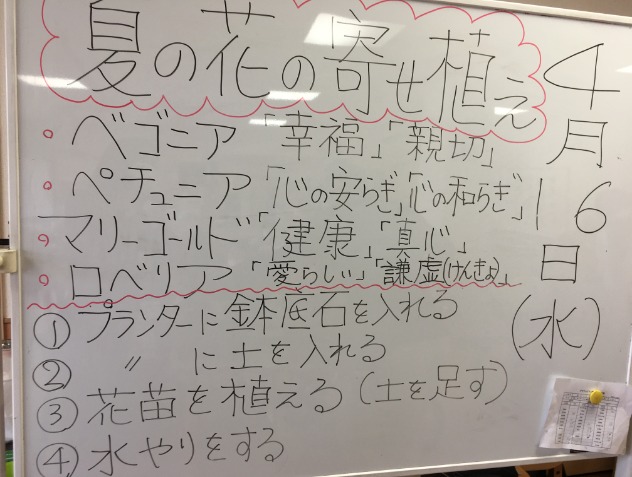 夏の花の寄せ植え
4月16日(水)
ベゴニア 「幸福」「親切」
ペチュニア「心の安らぎ」「心の和らぎ」
マリーゴールド「健康」「真心」
ロベリア 「愛らしい」「謙虚(けんきょ)」
① プランターに鉢底石を入れる
② 〃 に土を入れる
③ 花苗を植える(土を足す)
④ 水やりをする